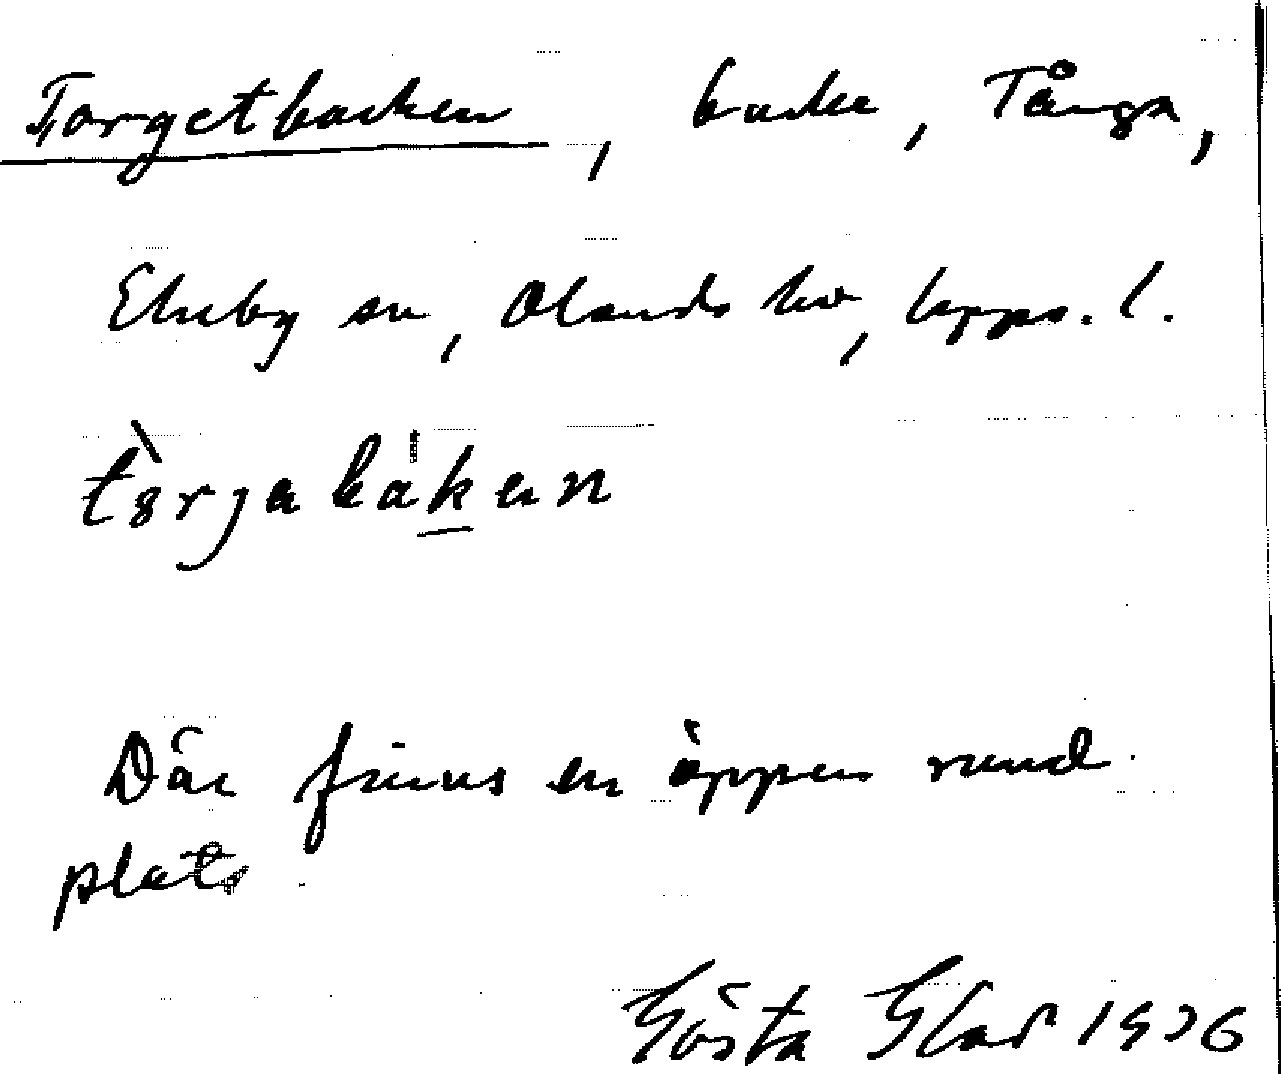 Torgetbacken, backe, Tånga,
Ekeby sn, Olands hd, Upps. l.
Där finns en öppen rund
plats.
Gösta Glad 1926